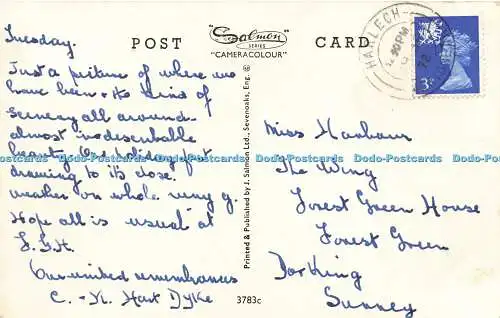 Tuesday.
POST "Salmon CARD
SERIES
"CAMERACOLOUR"
HARLECH
3P
Just a picture of where we
have been & the kind of
scenery all around -
almost indescribable
beauty. Our holiday just
drawing to its close.
weather on whole very g.
Hope all is usual at
F.G.H.
Our united remembrances
C. - N. Hart Dyke
Printed & Published by J. Salmon Ltd., Sevenoaks, Eng. ©
3783c
Miss Harbour
The Wing
Forest Green House
Forest Green
Dorking
Surrey
Dodo-Postcards Dodo-Postcards Dodo-Postcards Dodo-Postcards Dodo-Postcards Dodo-Postcards